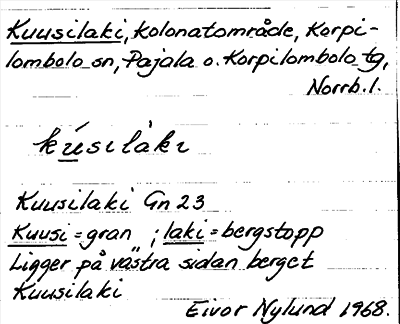 Kuusilaki, kolonatområde, Korpi-
lombolo sn, Pajala o. Korpilombolo tg,
Norrb. l.
kúsilàki
Kuusilaki Gn 23
Kuusi = gran ; laki = bergstopp
Ligger på västra sidan berget
Kuusilaki
Eivor Nylund 1968.